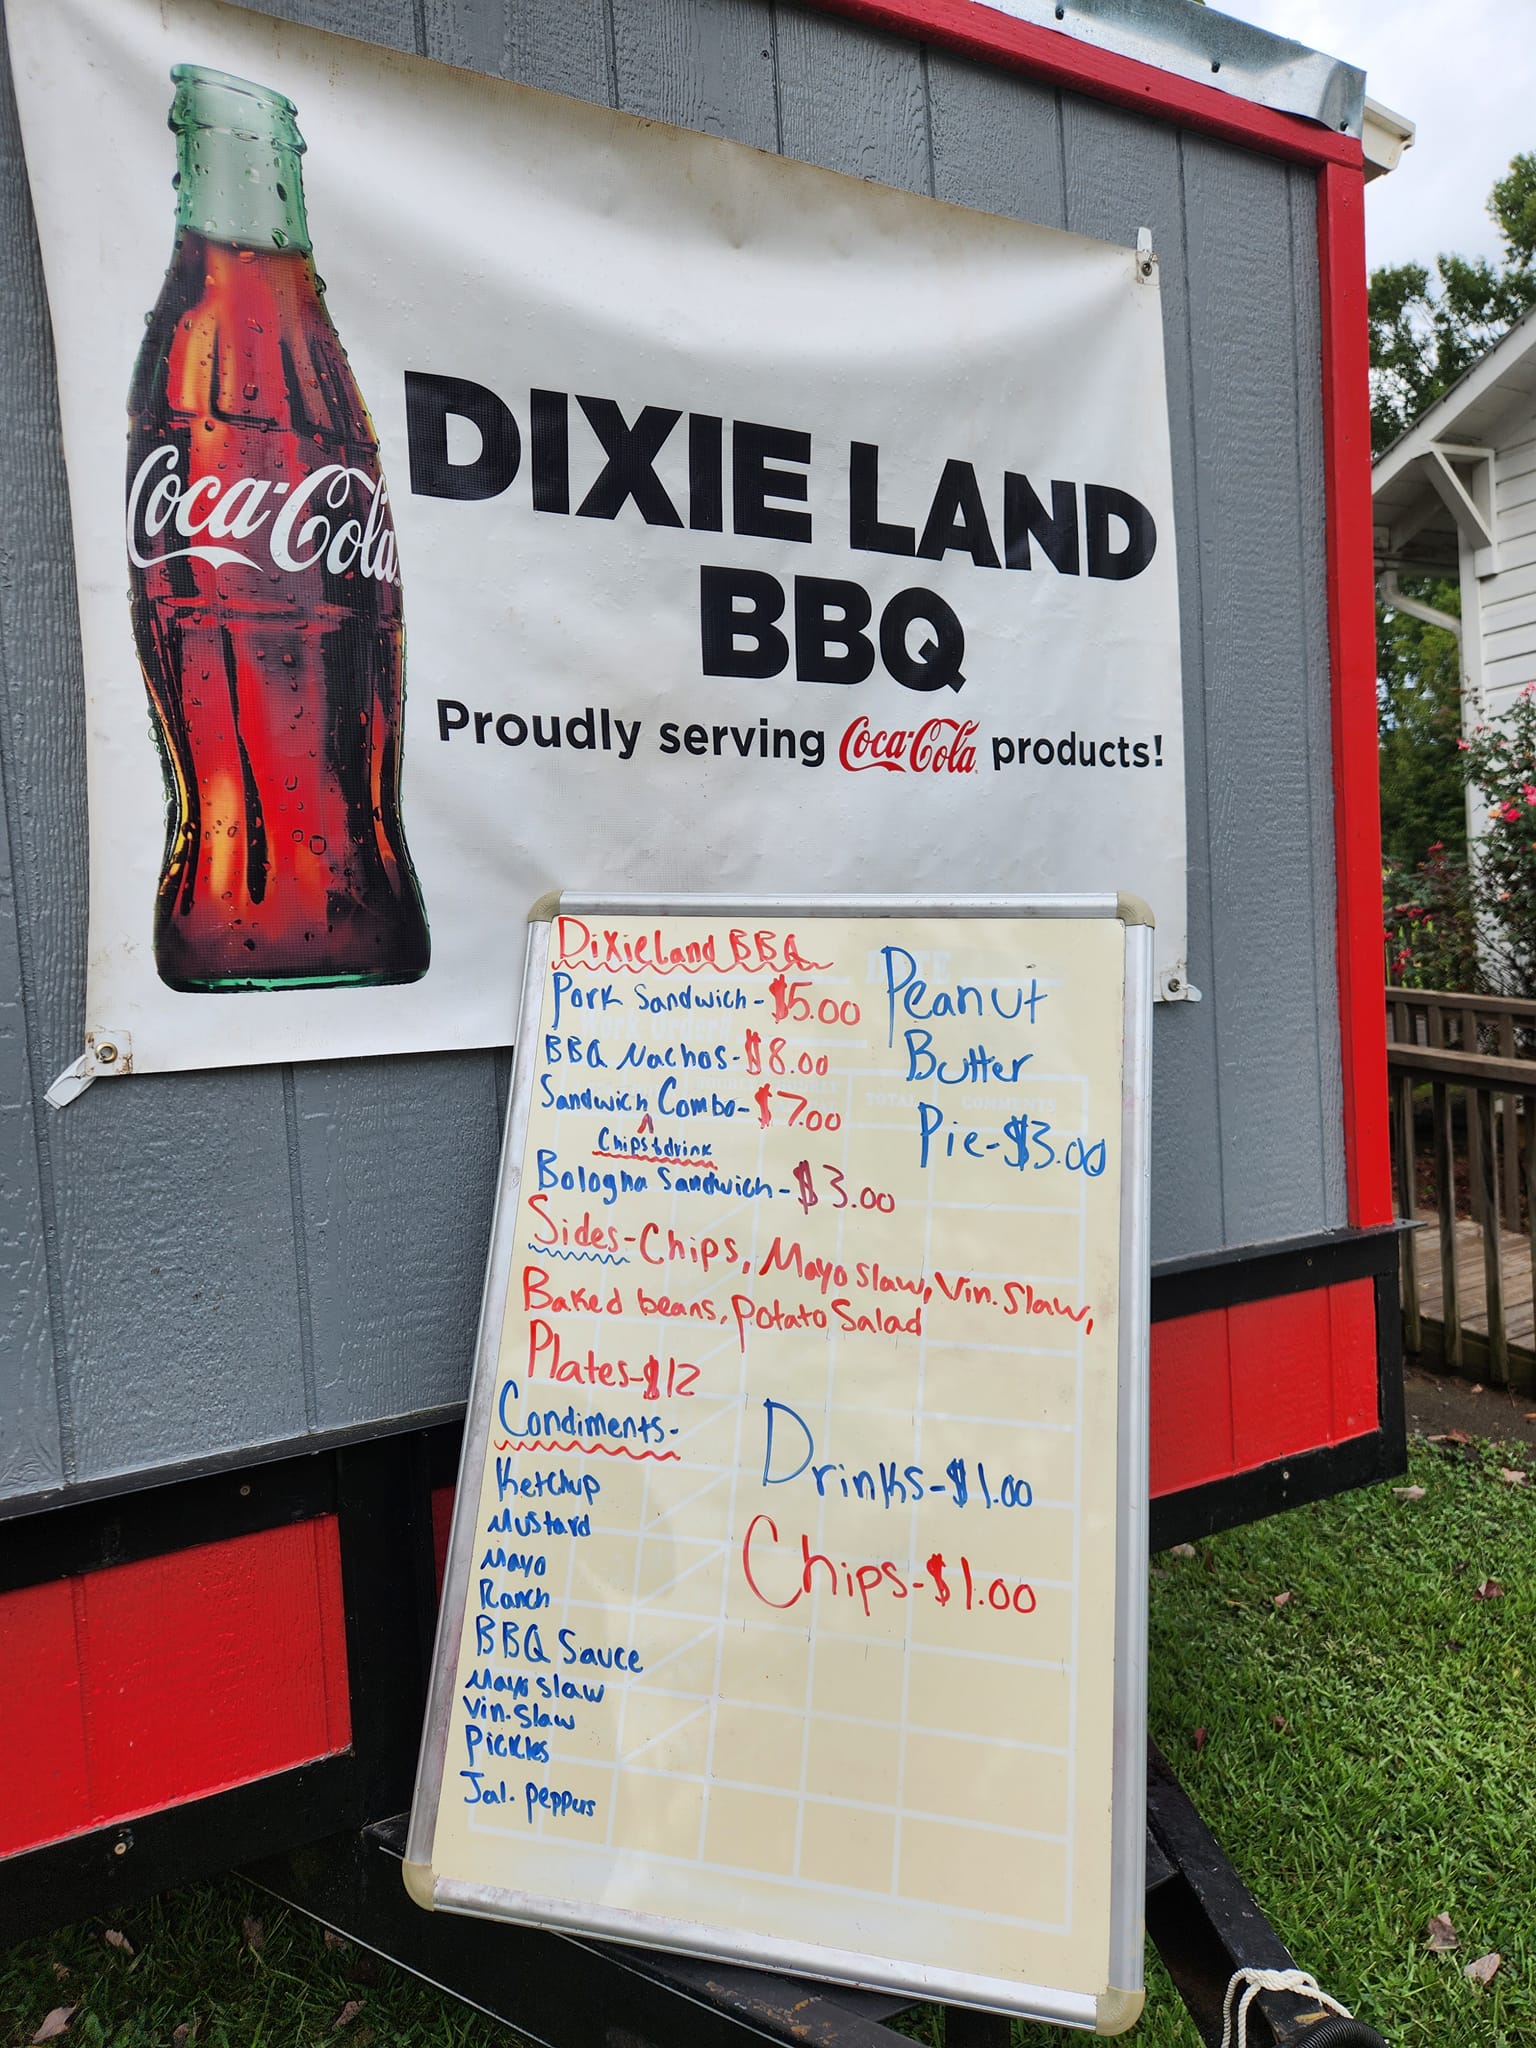 Coca-Cola
DIXIE LAND
BBQ
Proudly serving Coca-Cola products!
Dixieland BBQ
Pork Sandwich - $5.00
BBQ Nachos - $8.00
Sandwich Combo - $7.00
Chips & drink
Bologna Sandwich - $3.00
Sides - Chips, Mayo slaw, Vin. Slaw,
Baked beans, Potato Salad
Plates - $12
Condiments -
Ketchup
Mustard
Mayo
Ranch
BBQ Sauce
Mayo slaw
Vin. Slaw
Pickles
Jal. peppers
Peanut
Butter
Pie - $3.00
Drinks - $1.00
Chips - $1.00
TOTAL
COMMENTS